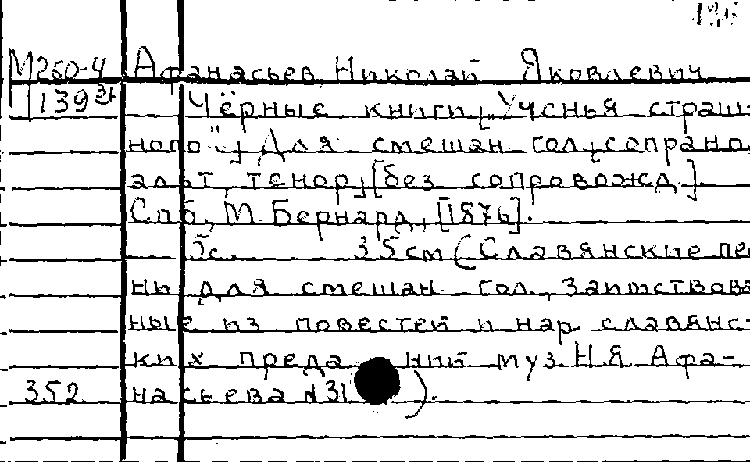 136
М260-4 Афанасьев, Николай Яковлевич
139 Чёрные книги „Ученья страш-
ного", Для смешан. гол., сопрано,
альт, тенор, [без сопровожд.]
Спб, М. Бернард, [1876].
5с. 35см (Славянские пес-
ни для смешан. гол., заимствован-
ные из повестей и нар. славянс-
ких преданий муз. Н.Я. Афа-
352 насьева №31).